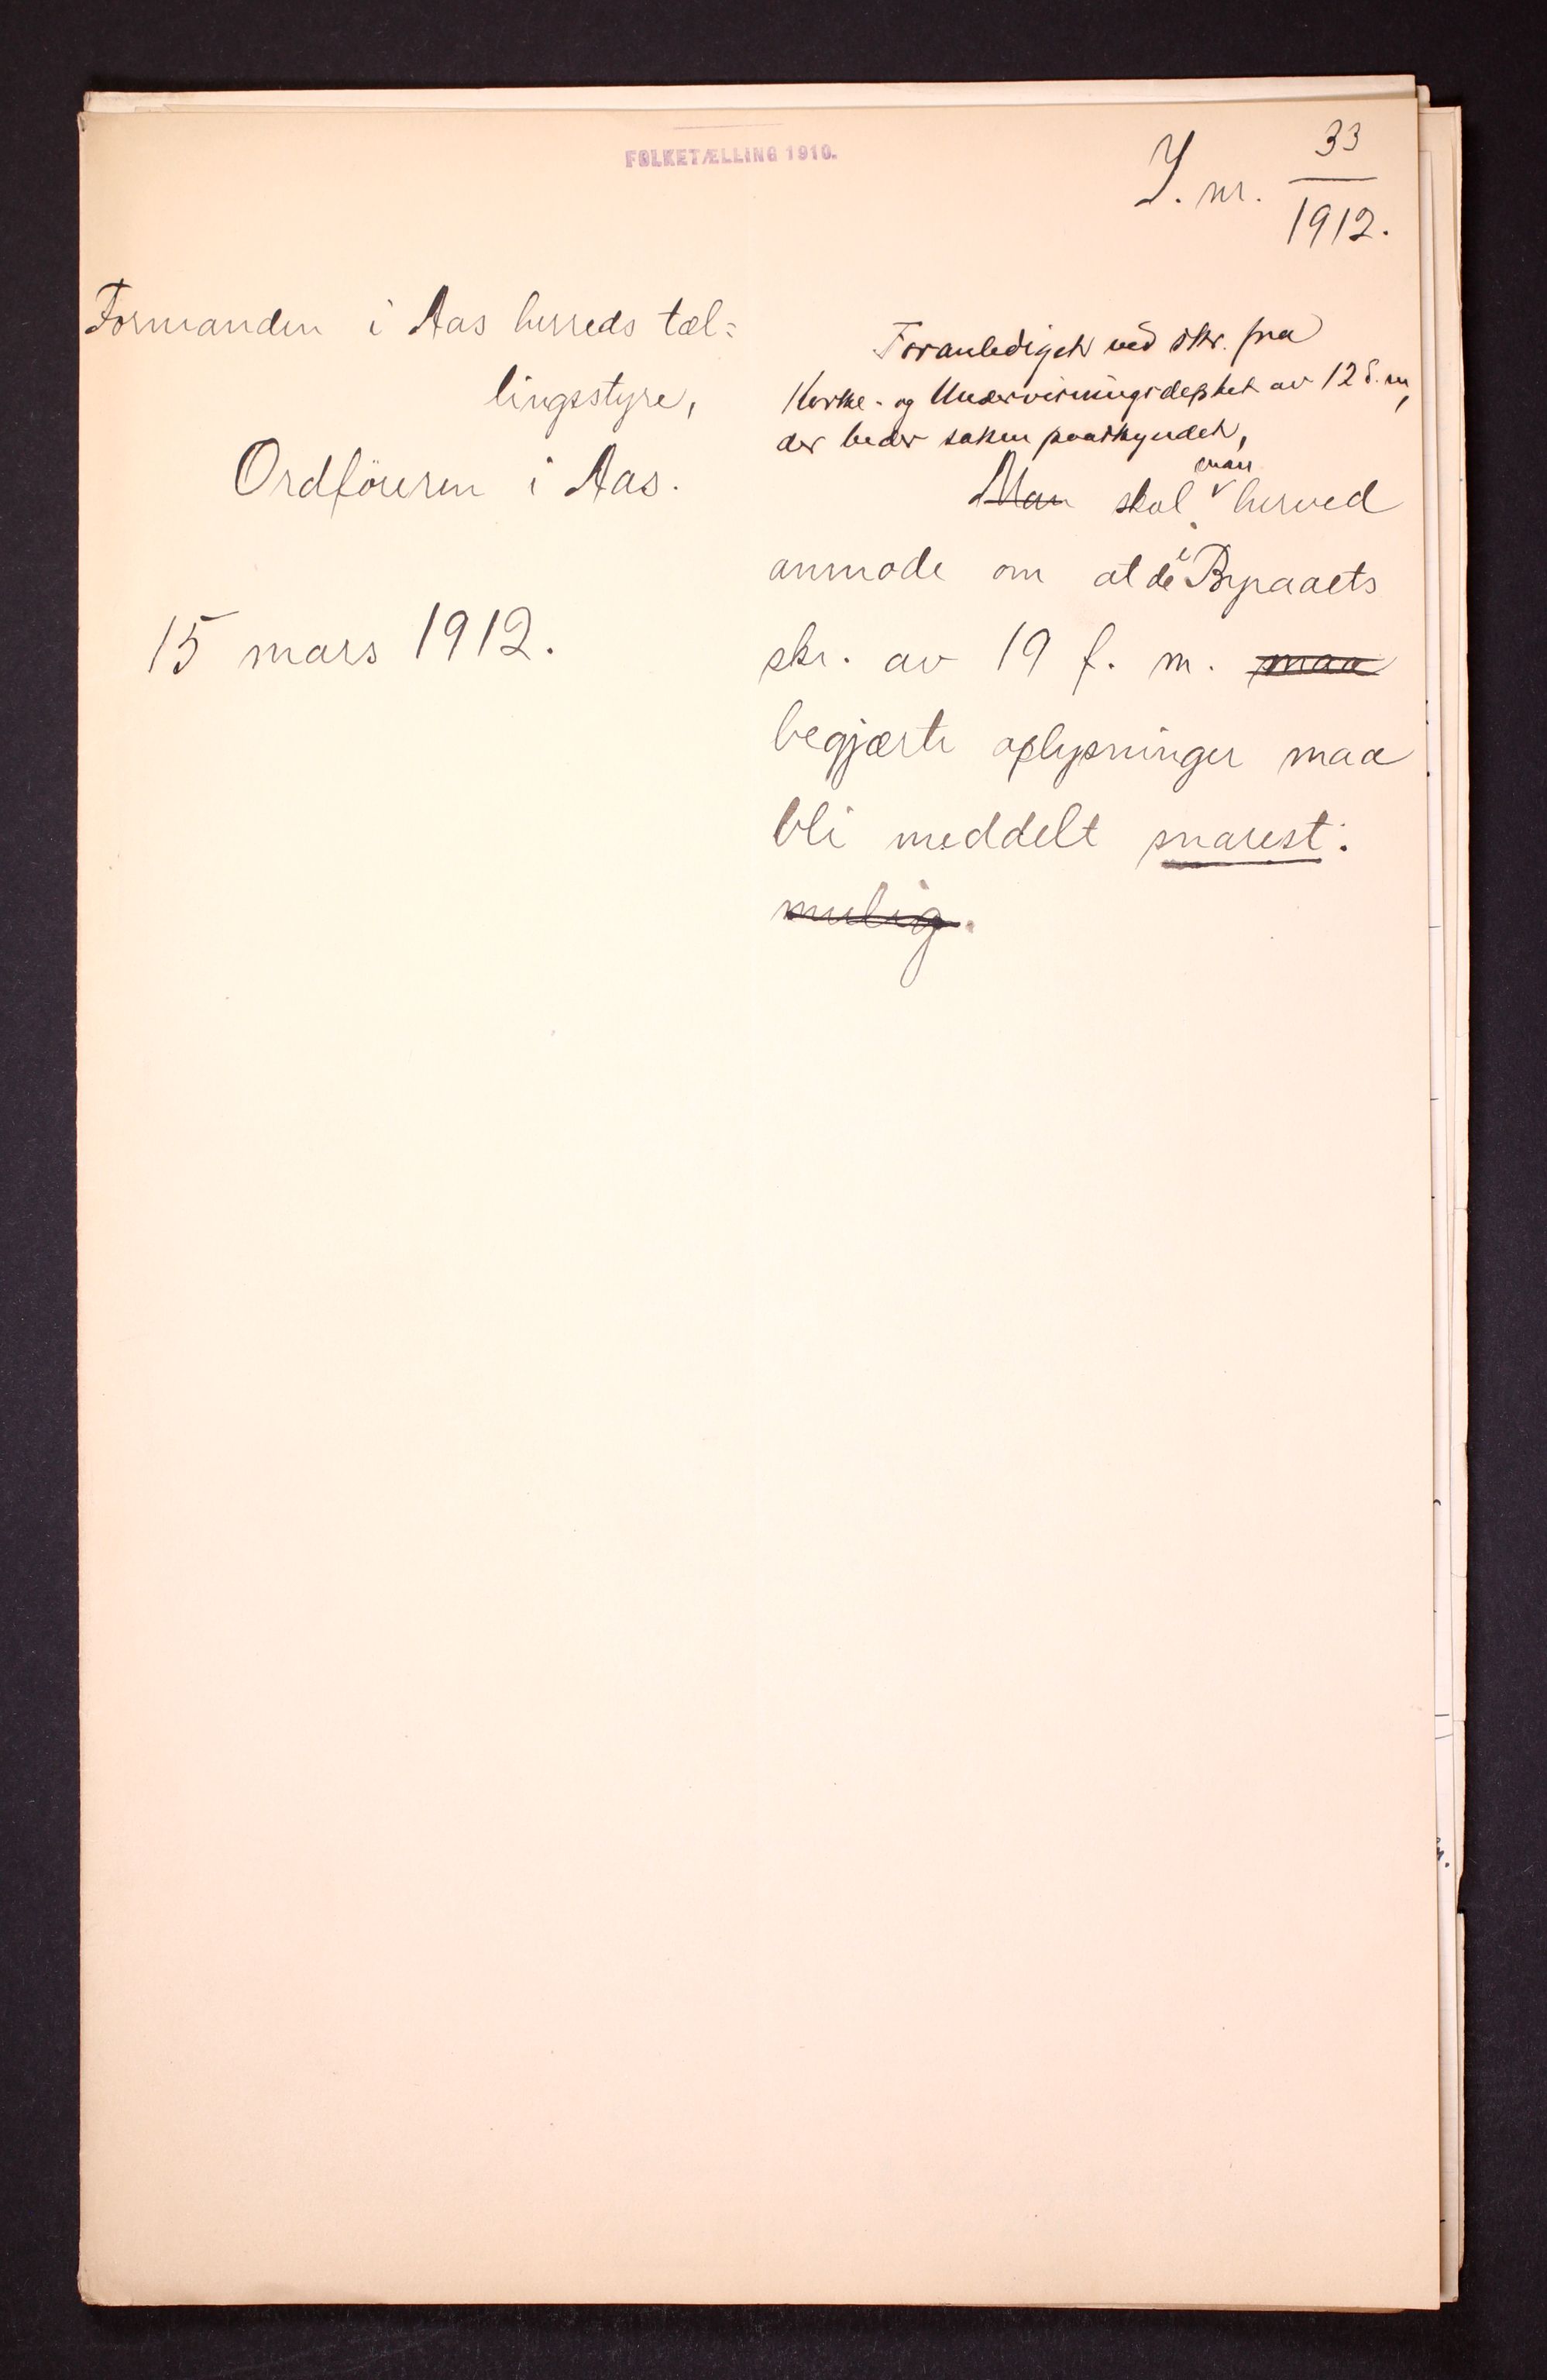 FOLKETÆLLING 1910.
J. nr. 33
1912.
Formanden i Aas herreds tæl=
lingsstyre,
Ordföreren i Aas.
15 mars 1912.
Foranlediget ved skr. fra
Kirke- og Undervisningsdeptet av 12 d. m,
der beder saken paaskyndet,
man
Man skal herved
anmode om at de i Byraaets
skr. av 19 f. m. maa
begjærte oplysninger maa
bli meddelt snarest.
mulig.